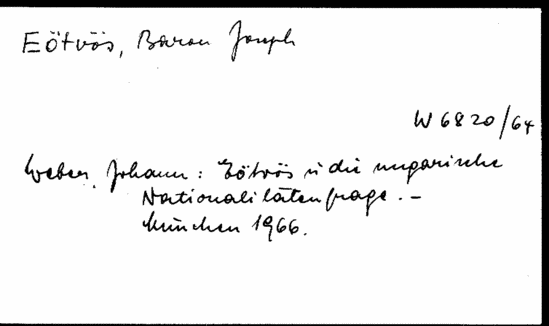 Eötvös, Baron Joseph
W 6820/64
Weber, Johann: Eötvös u die ungarische
Nationalitätenfrage. –
München 1966.